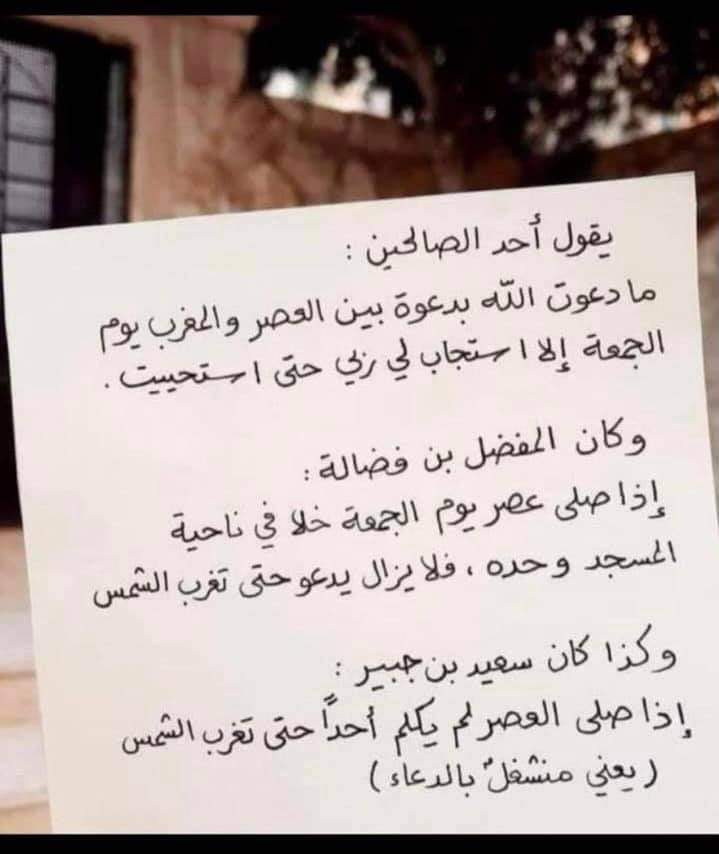 يقول أحد الصالحين :
ما دعوت الله بدعوة بين العصر والمغرب يوم
الجمعة إلا استجاب لي ربي حتى استحييت .
وكان المفضل بن فضالة :
إذا صلى عصر يوم الجمعة خلا في ناحية
المسجد وحده ، فلا يزال يدعو حتى تغرب الشمس
وكذا كان سعيد بن جبير :
إذا صلى العصر لم يكلم أحداً حتى تغرب الشمس
(يعني منشغلٌ بالدعاء)